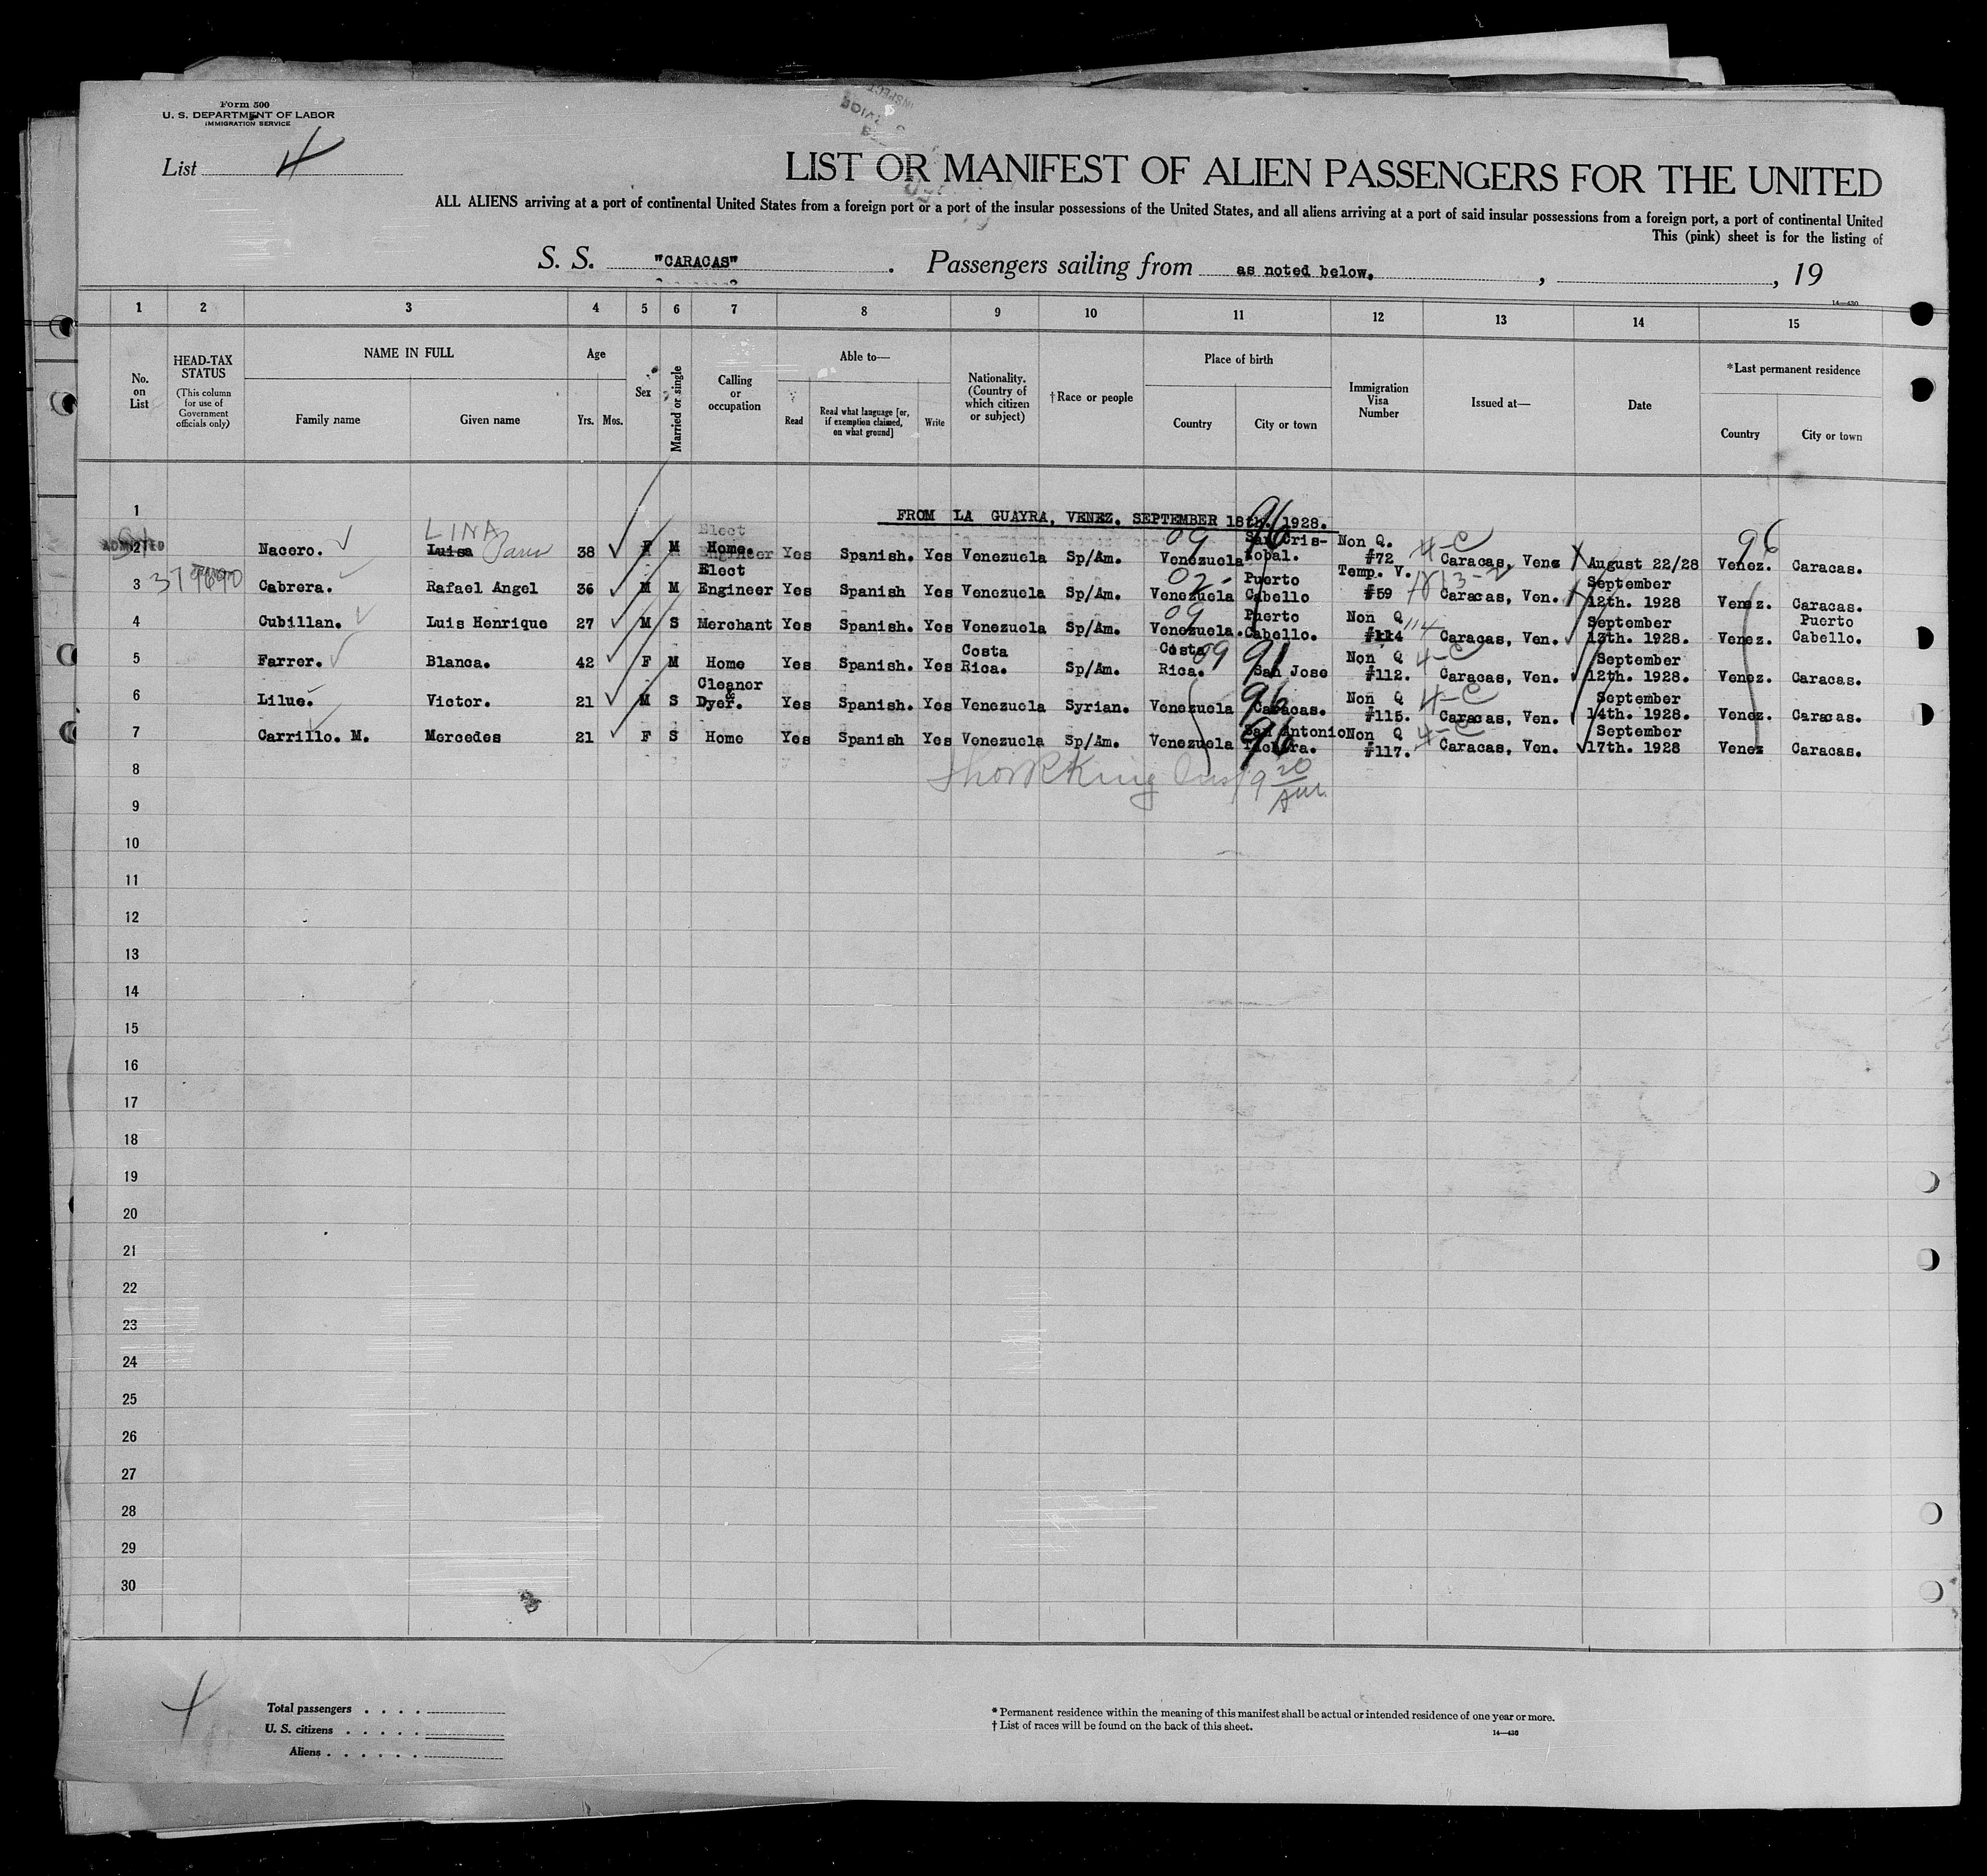 Form 500
U. S. DEPARTMENT OF LABOR
IMMIGRATION SERVICE
List 4
LIST OR MANIFEST OF ALIEN PASSENGERS FOR THE UNITED
ALL ALIENS arriving at a port of continental United States from a foreign port or a port of the insular possessions of the United States, and all aliens arriving at a port of said insular possessions from a foreign port, a port of continental United
This (pink) sheet is for the listing of
S. S. "CARACAS" . Passengers sailing from as noted below. , , 19
14—430
1 2 3 4 5 6 7 8 9 10 11 12 13 14 15
No. on List
HEAD-TAX STATUS (This column for use of Government officials only)
NAME IN FULL Family name Given name
Age Yrs. Mos.
Sex
Married or single
Calling or occupation
Able to— Read Read what language [or, if exemption claimed, on what ground] Write
Nationality. (Country of which citizen or subject)
†Race or people
Place of birth Country City or town
Immigration Visa Number
Issued at—
Date
*Last permanent residence Country City or town
1 FROM LA GUAYRA, VENEZ. SEPTEMBER 18th. 1928. 96
LINA
ADMITTED 2 Nacero. Luisa 38 F M Home. Yes Spanish. Yes Venezuela Sp/Am. 09 Venezuela San Cris-tobal. Non Q. #72 4-C Caracas, Venz August 22/28 96 Venez. Caracas.
3 Cabrera. Rafael Angel 36 M M Elect Engineer Yes Spanish Yes Venezuela Sp/Am. 02- Venezuela Puerto Cabello Temp. V. #59 3-2 Caracas, Ven. September 12th. 1928 Venez. Caracas.
4 Cubillan. Luis Henrique 27 M S Merchant Yes Spanish. Yes Venezuela Sp/Am. 09 Venezuela. Puerto Cabello. Non Q #114 114 Caracas, Ven. September 13th. 1928. Venez. Puerto Cabello.
5 Farrer. Blanca. 42 F M Home Yes Spanish. Yes Costa Rica. Sp/Am. Costa Rica. 09 91 San Jose Non Q #112. 4-C Caracas, Ven. September 12th. 1928. Venez. Caracas.
6 Lilue. Victor. 21 M S Cleaner & Dyer. Yes Spanish. Yes Venezuela Syrian. Venezuela 96 Caracas. Non Q #115. 4-C Caracas, Ven. September 14th. 1928. Venez. Caracas.
7 Carrillo. M. Mercedes 21 F S Home Yes Spanish Yes Venezuela Sp/Am. Venezuela 96 San Antonio Tachira. Non Q #117. 4-C Caracas, Ven. September 17th. 1928 Venez Caracas.
8
9
10
11
12
13
14
15
16
17
18
19
20
21
22
23
24
25
26
27
28
29
30
4
Total passengers . . . .
U. S. citizens . . . . .
Aliens . . . . . .
* Permanent residence within the meaning of this manifest shall be actual or intended residence of one year or more.
† List of races will be found on the back of this sheet.
14—430